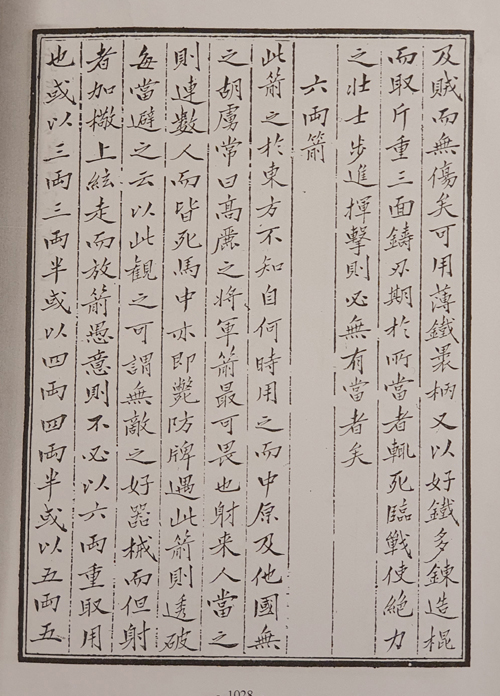 及賊而無傷矣可用薄鐵裹柄又以好鐵多鍊造棍
而取斤重三面鑄刃期於所當者輒死臨戰使絶力
之壯士步進揮擊則必無有當者矣
六両箭
此箭之於東方不知自何時用之而中原及他國無
之胡虜常曰髙麗之将軍箭最可畏也射来人當之
則連數人而皆死馬中亦即斃防牌遇此箭則透破
每當避之云以此観之可謂無敵之好器械而但射
者加橵上絃走而放箭愚意則不必以六両重取用
也或以三両三両半或以四両四両半或以五両五
1028